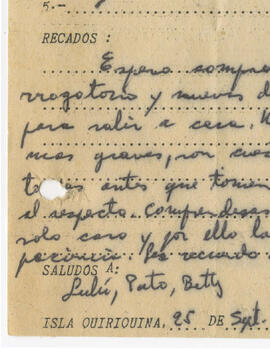 5.-
RECADOS :
Espero compre
rrogatorio y nuevos d
para salir a casa.
mas graves, son
antes que tomen
al respecto.
solo caso y por ello la
paciencia. les recuerdo
SALUDOS A:
Lulú, Pato, Betty
ISLA QUIRIQUINA, 25 DE Sept.